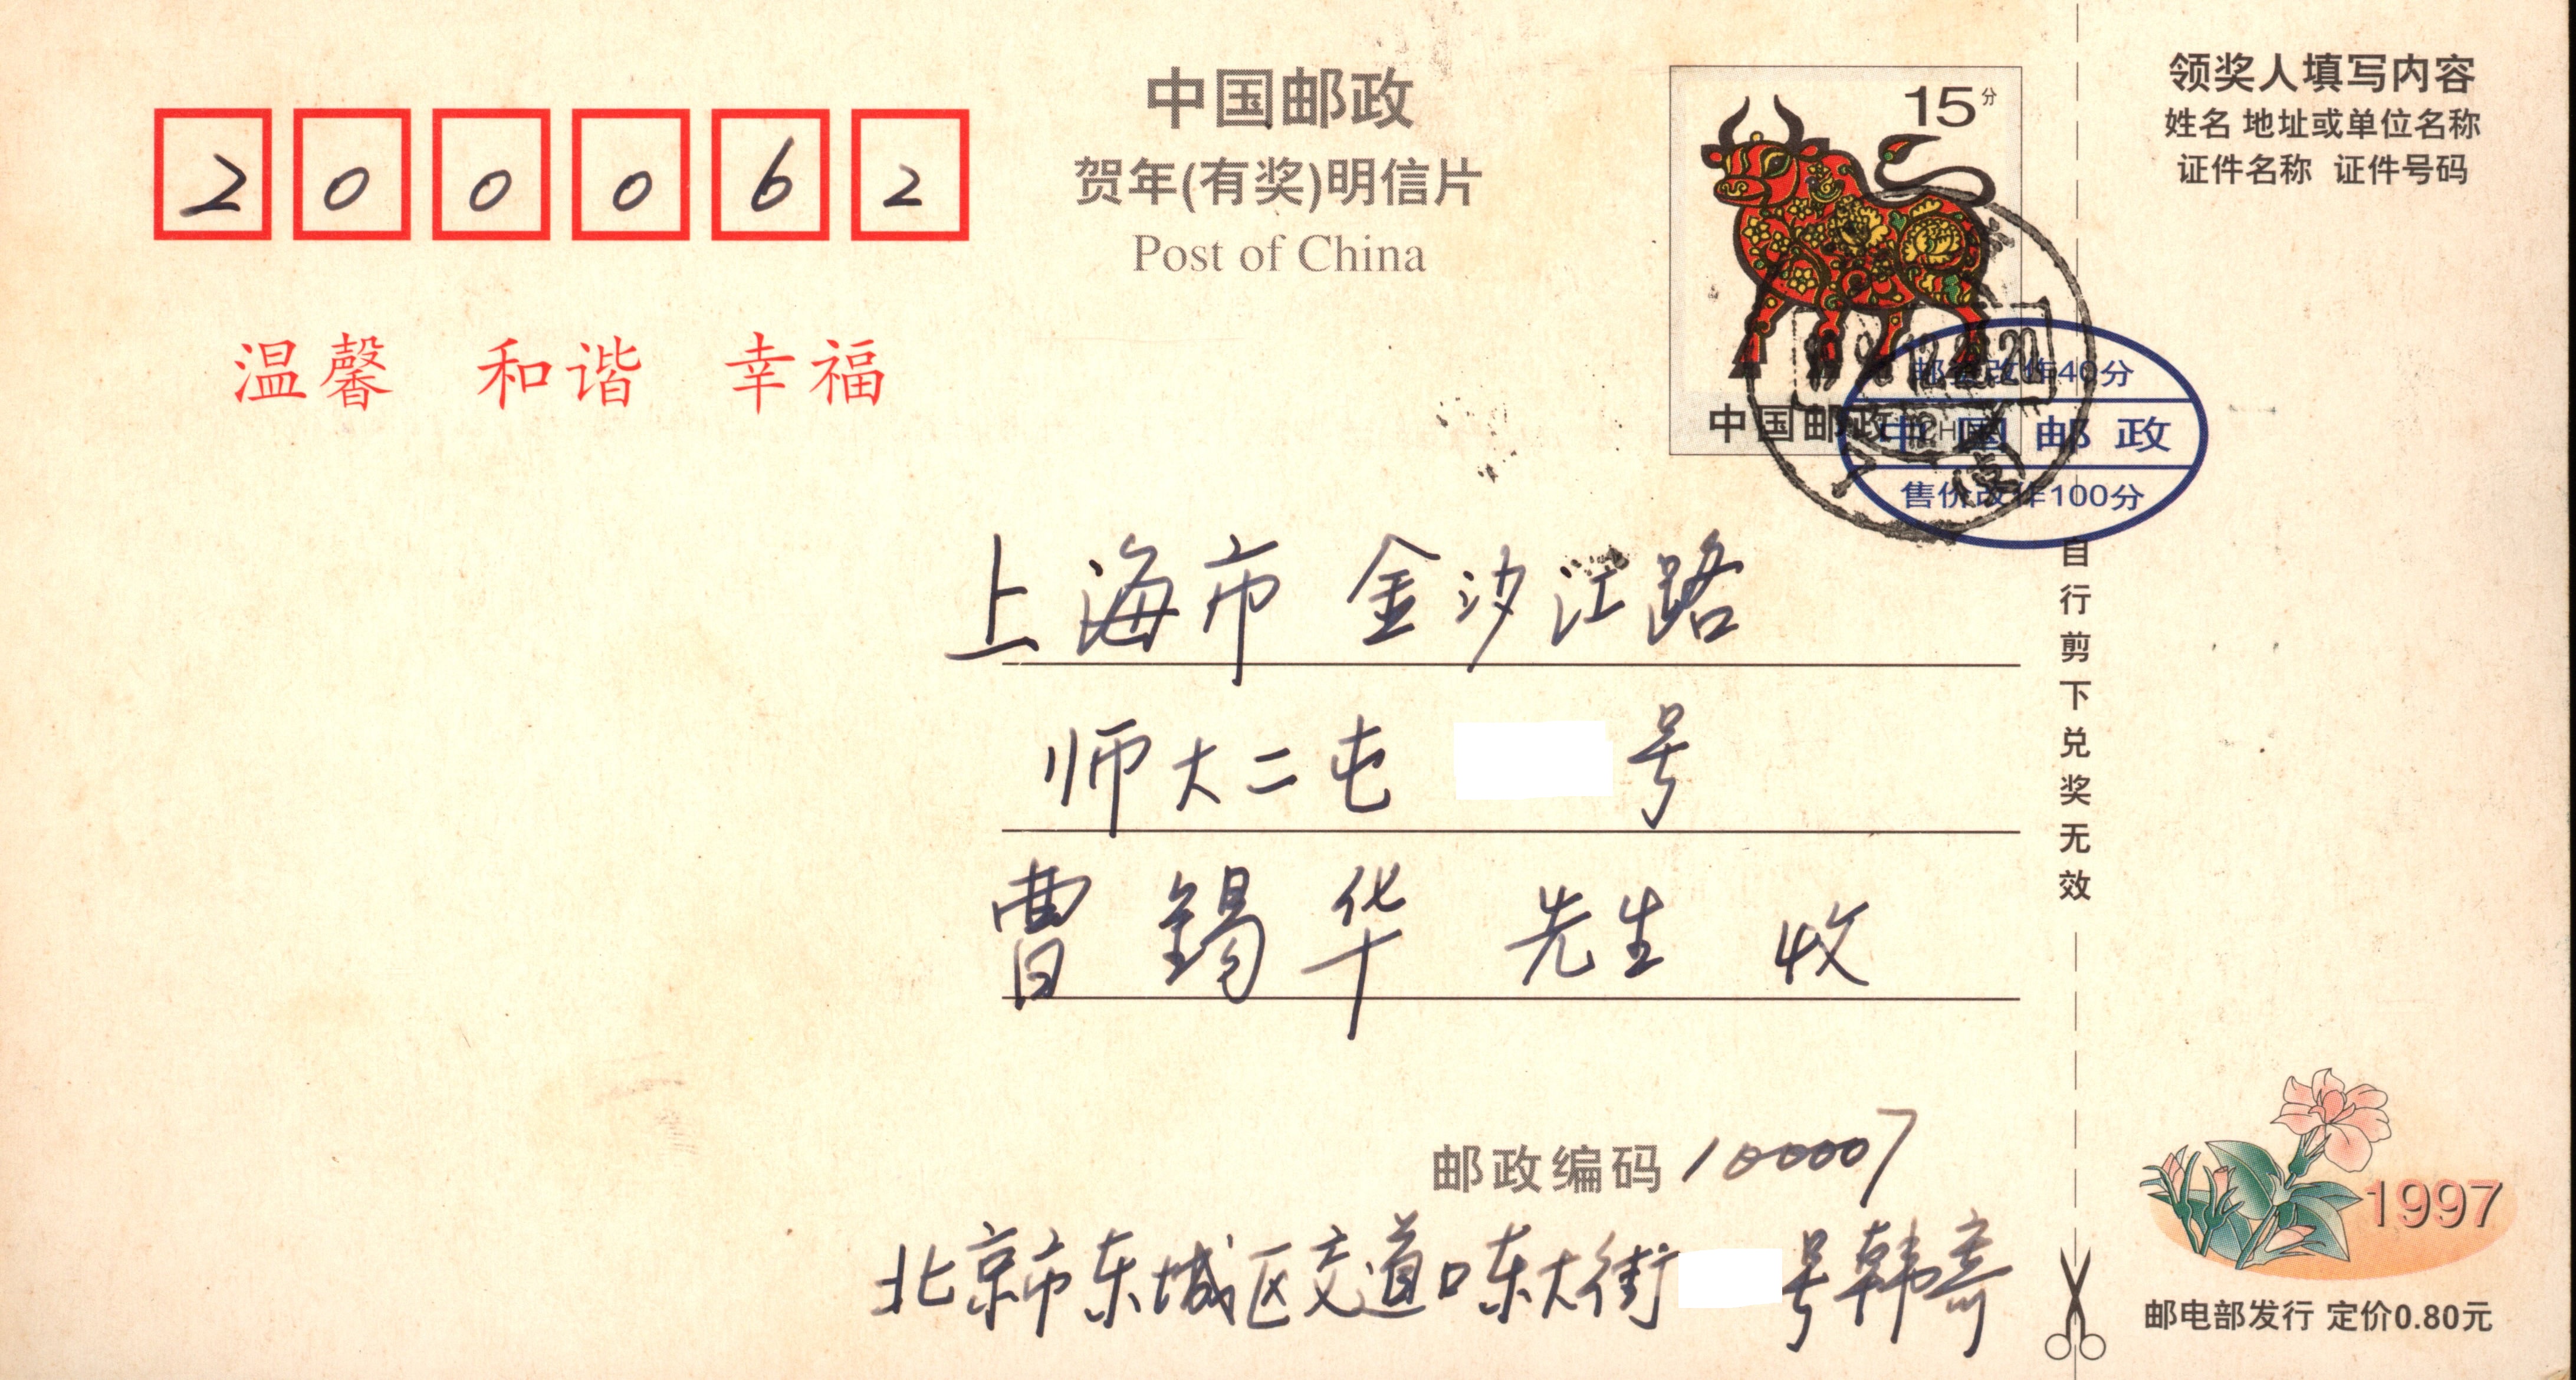 中国邮政
贺年(有奖)明信片
Post of China
200062
温馨 和谐 幸福
15分
中国邮政
邮资改作40分
中国邮政
售价改作100分
上海市 金沙江路
师大二屯 号
曹锡华 先生 收
邮政编码 100007
北京市东城区交道口东大街 号韩寄
领奖人填写内容
姓名 地址或单位名称
证件名称 证件号码
自行剪下兑奖无效
1997
邮电部发行 定价0.80元